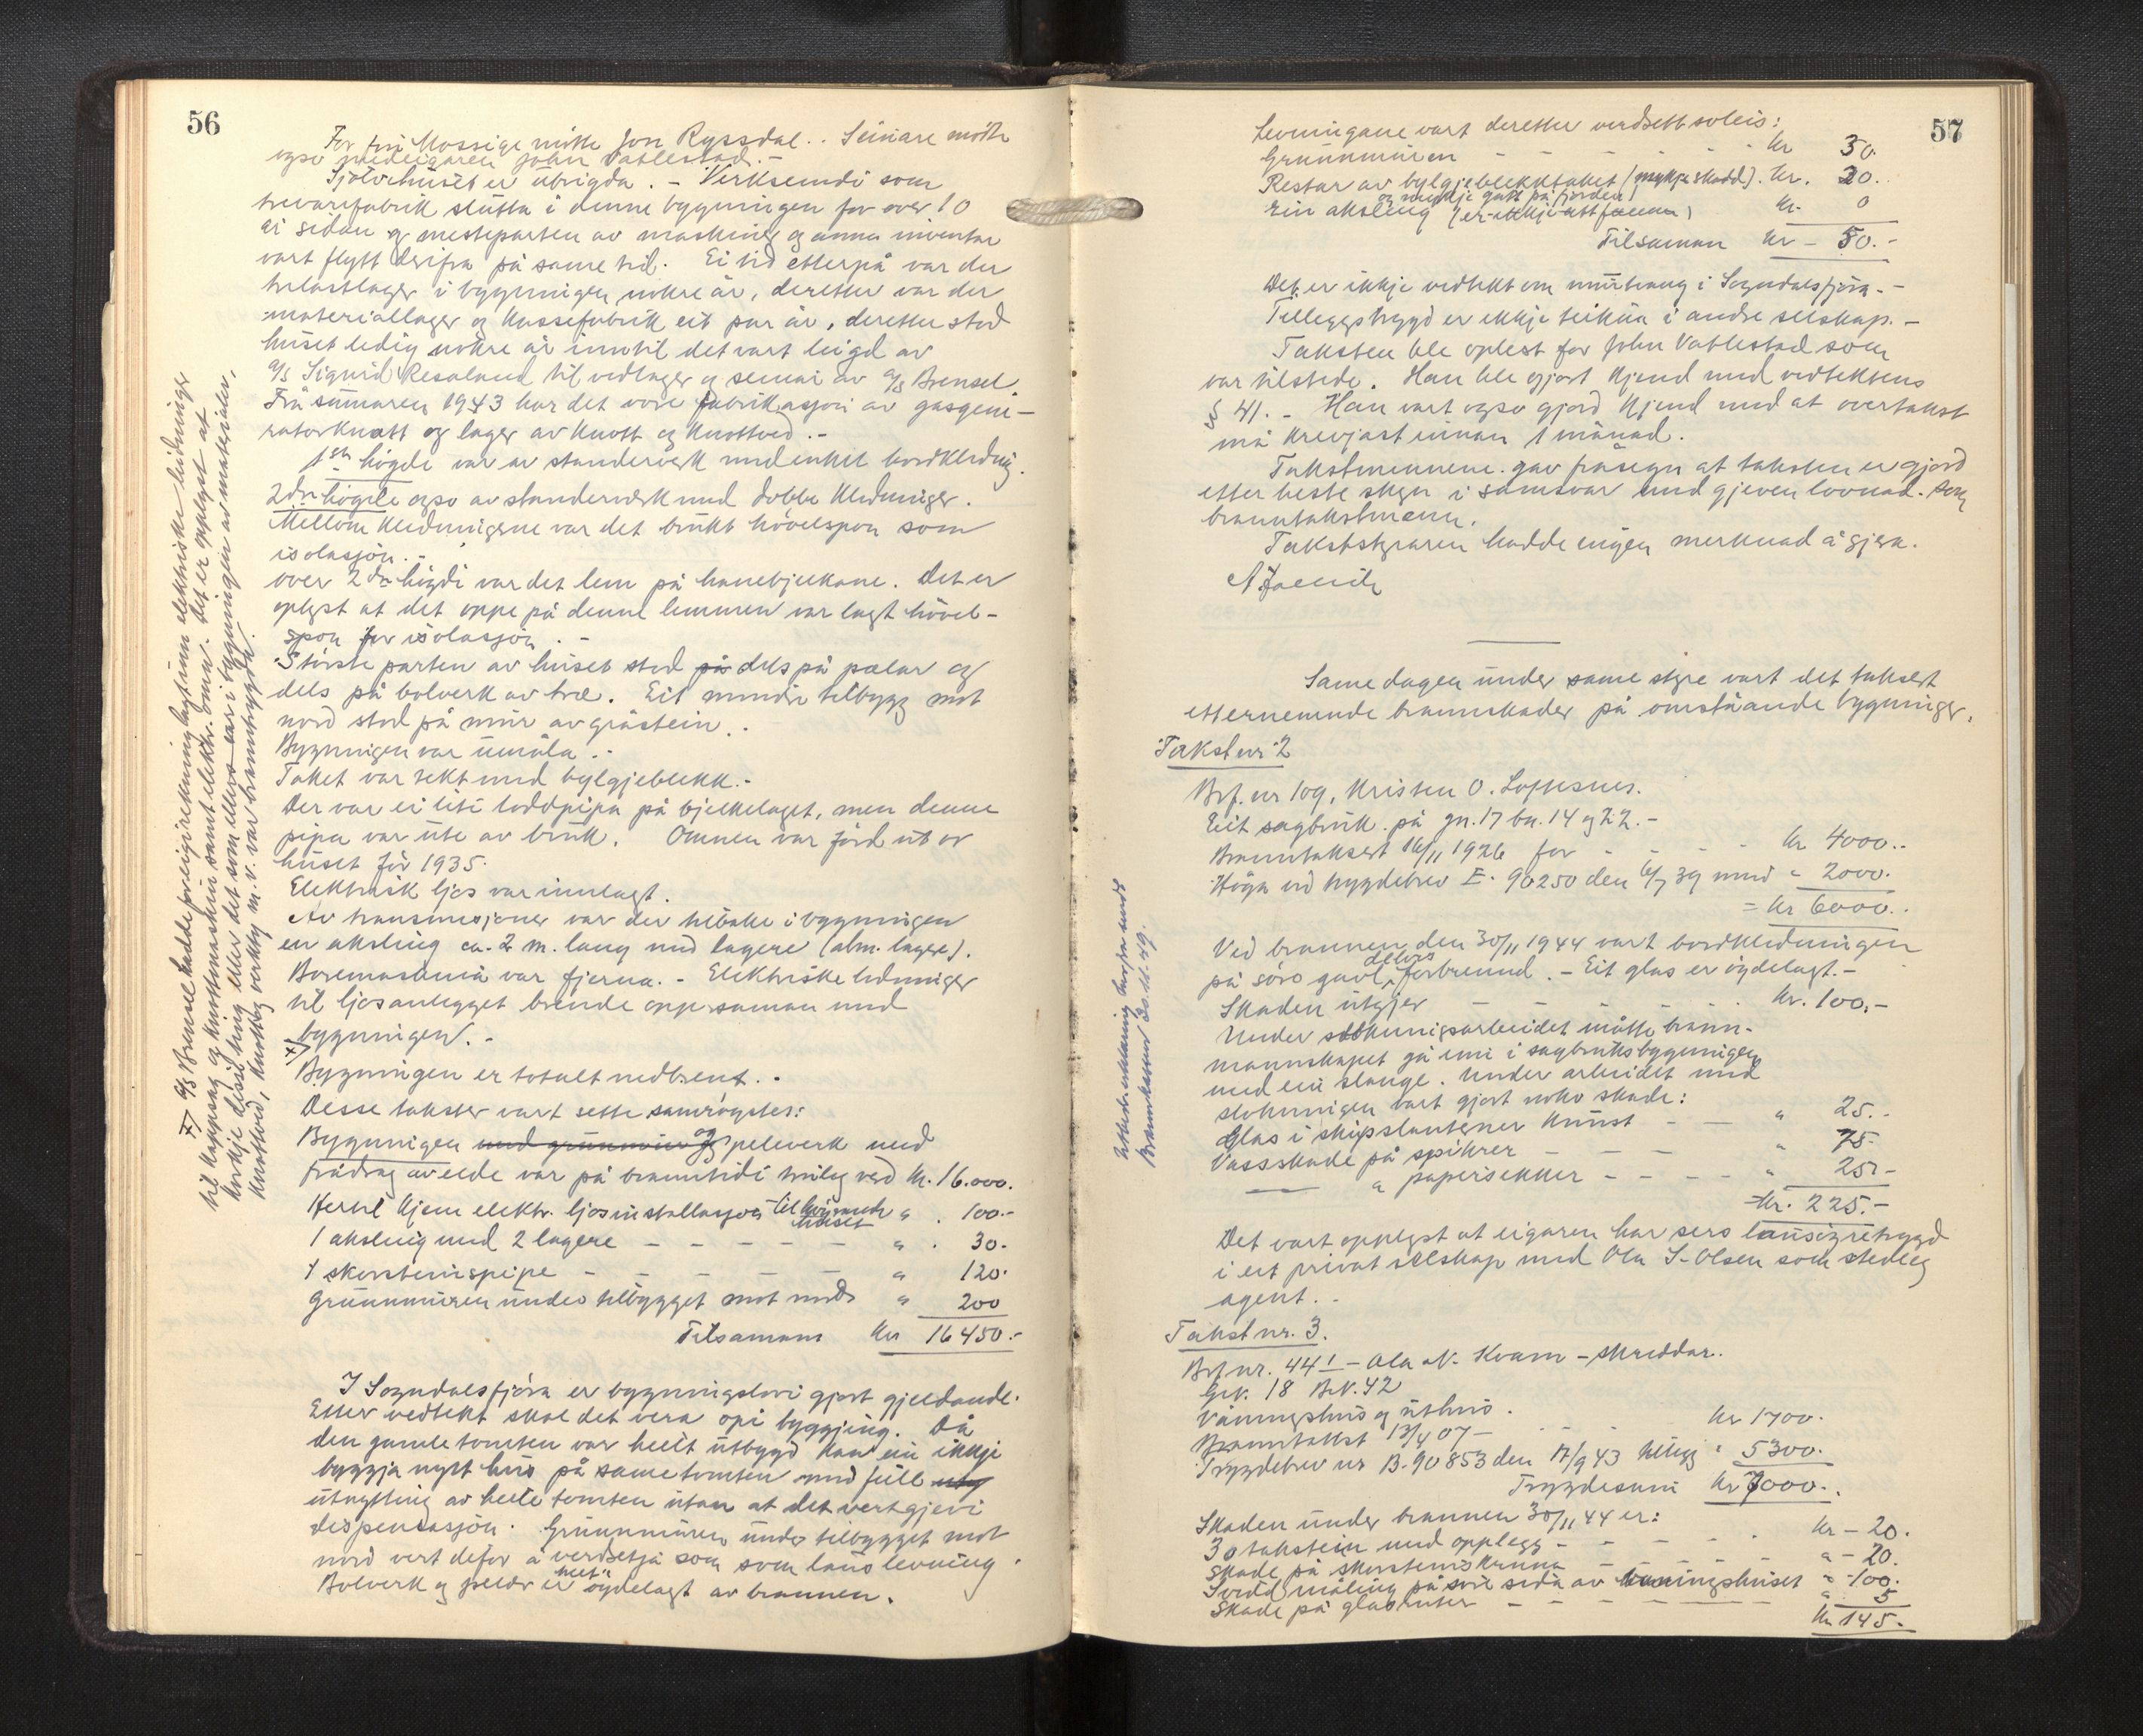 56
For frú Mossige mötte Jon Ryssdal. . Seinare mötte
også medeigaren John Vatlestad. -
Sjølve huset er ubrigda. - Verksemdi som
trevarefabrik slutta i denne bygningen for over 10
år sidan og mesteparten av maskiner og anna inventar
vart flytt derifra på same tid. Ei tid etterpå var der
trelastlager i bygningen nokre år, deretter var der
materiallager og kassefabrik eit par år, deretter stod
huset ledig nokre år inntil det vart leigd av
a/s Sigurd Resaland til vedlager og seinare av a/s Brensel
Frå sumaren 1943 har det vore fabrikasjon av gasgene-
ratorknott og lager av knott og knottved. -
1ste högde var av standerverk med enkel bordkledning.
2dre högde også av standerverk med dobbe kledninger.
Mellom kledningene var det brukt hövelspon som
isolasjon. -
Over 2dre högdi var det lem på hanebjelkane. Det er
oplyst at det oppe på denne lemmen var lagt hövel-
spon for isolasjon. -
Største parten av huset stod på dels på pælar og
dels på bolverk av tre. Eit mindre tilbygg mot
nord stod på mur av gråstein. -
Bygningen var umåla. -
Taket var tekt med bylgjeblekk. -
Der var ei liti loddpipa på bjelkelaget, men denne
pipa var ute av bruk. Omnen var förd ut av
huset för 1935.
Elektrisk ljos var innlagt.
Av transmisjoner var der tilbake i bygningen
en aksling ca. 2 m. lang med lagere (alm. lagere).
Boremaskina var fjerna. - Elektriske ledninger
til ljosanlegget brende opp saman med
bygningen. -
x)
Bygningen er totalt nedbrent. -
Desse takster vart sette samröystes:
Bygningen med grunnmur og og pelverk med
frádrag av elde var på branntidi truleg verd kr. 16.000.
Hertil kjem elektr. ljosinstallasjon til huset " . 100.-
1 aksling med 2 lagere - - - - - " . 30.
1 skorsteinspipe - - - - - " 120.
Grunnmuren under tilbygget mot nord " 200
Tilsamans Kr 16450.-
I Sogndalsfjöra er bygningslovi gjort gjeldande.
Etter vedtekt skal det vera opi byggjing. Då
den gamle tomten var heilt utbygd kan ein ikkje
byggja nytt hus på same tomten med full utny
utnytting av heile tomten utan at det vert gjevi
dispensasjon. Grunnmuren under tilbygget mot
nord vert defor å verdsetja som som laus levning.
Bolverk og pelar er heilt öydelagt av brannen.
x) a/s Brensel hadde for eigi rekning lagt inn elektriske leidninger
til kappsag og knottmaskin samt elektr. omn. Det er opplyst at
korkje disse ting eller det som ellers var i bygningen av materialer,
knottved, knott og verkty m.v. var branntrygda.
57
Levningane vart deretter verdsett soleis:
Grunnmuren - - - - - - Kr 30.
Restar av bylgjeblekktaket (mykje skadd). Kr. 20.
og mykje gått på fjorden)
Ein aksling (er ikkje att funnen) Kr. 0
Tilsaman Kr - 50.-
Det er ikkje vedtekt om murtvang i Sogndalsfjöra. -
Tilleggstrygd er ikkje teikna i andre selskap. -
Taksten ble oplest for John Vatlestad som
var tilstede. Han ble gjort kjend med vedtektens
§ 41. - Han vart også gjord kjend med at overtakst
må krevjast innan 1 månad.
Takstmennene gav fråsegn at taksten er gjord
etter beste skyn i samsvar med gjeven lovnad som
branntakstmenn.
Takststyraren hadde ingen merknad å gjera.
Same dagen under same styre vart det taksert
etternemnde brannskader på omståande bygninger.
Takst nr 2
Brf. nr 109, Kristen O. Loftesnes.
Eit sagbruk på gn. 17 bn. 14 og 22. -
Branntaksert 16/11 1926 for - - - - Kr 4000.-
Höga ved trygdebrev E. 90250 den 6/7 39 med " 2000.
= Kr 6000..
Ved brannen den 30/11 1944 vart bordkledningen
på söre gavl delvis forbrennd. - Eit glas er öydelagt. -
Skaden utgjer - - - - - - . Kr. 100.-
Under slökningsarbeidet måtte brann-
mannskapet gå inn i sagbruksbygningen
med ein slange. Under arbeidet med
slökningen vart gjort noko skade:
Glas i skipslanterner knust - - " 25.-
Vasskade på spikrer - - - - " 75.-
— " papirsekker - - - - " 25.-
Kr. 225.-
Det vart opplyst at eigaren har sers lausöyretrygd
i eit privat selskap med Ola S. Olsen som stedleg
agent. -
Brannkassen 30.11.49.
Takst nr. 3.
Brf nr. 441 - Ola N. Kvam - skreddar.
Gr. 18 Br. 42
Våningshus og uthus.
Branntakst 13/4 07 - - - - Kr 1700.
Trygdebrev nr B. 90853 den 17/9 43 tillegg " 5300.
Trygdesum Kr 7000.-
Skaden under brannen 30/11 44 er:
30 takstein med opplegg - - - . Kr - 20.
Skade på skorsteinskruna - - - - - " - 20.
Svidd måling på söre sida av våningshuset " - 100.
Skade på glasruter - - - - - " 5
Kr 145.-